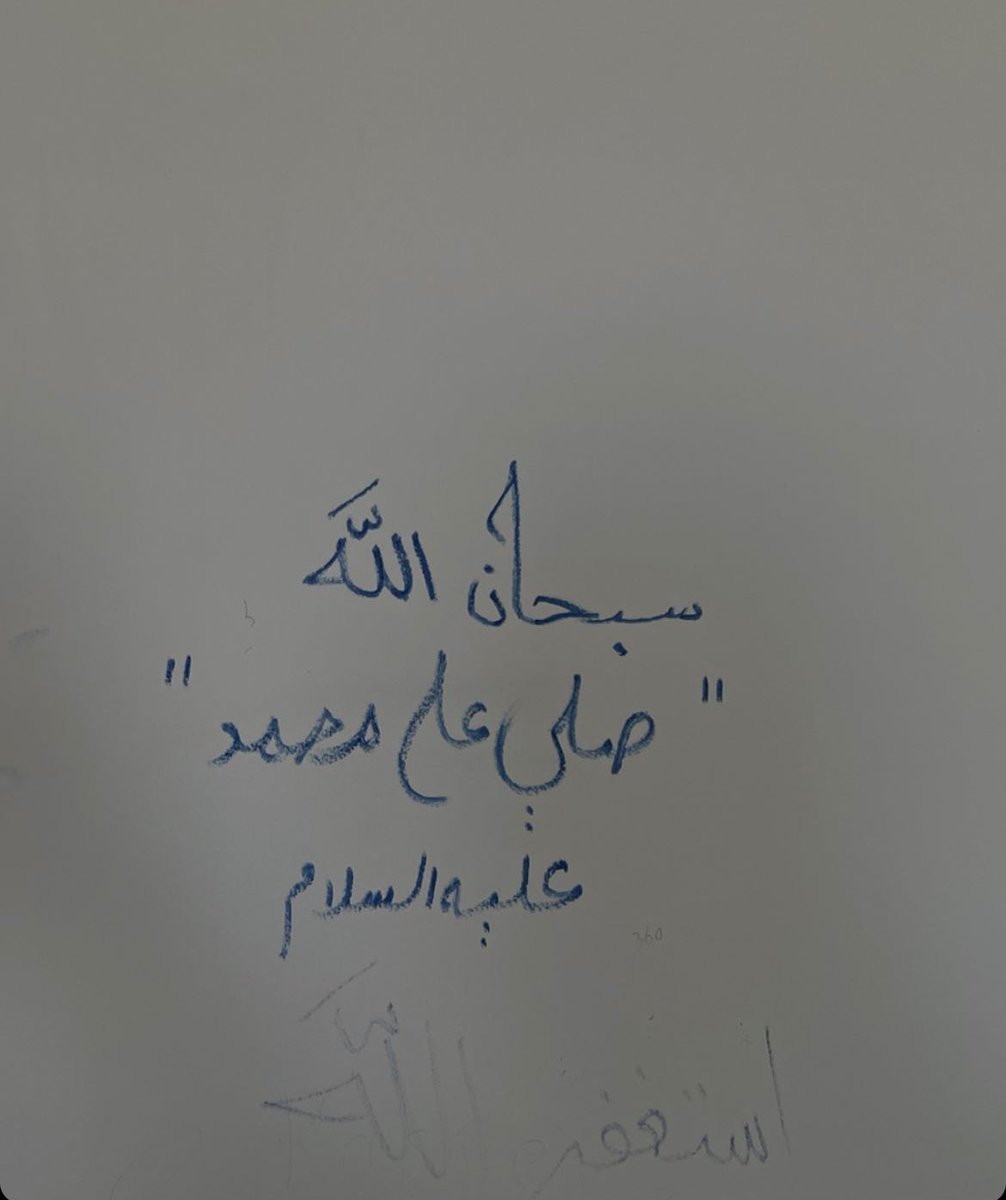 سبحان اللَّه
"صلي على محمد"
عليه السلام
360
استغفر اللَّه